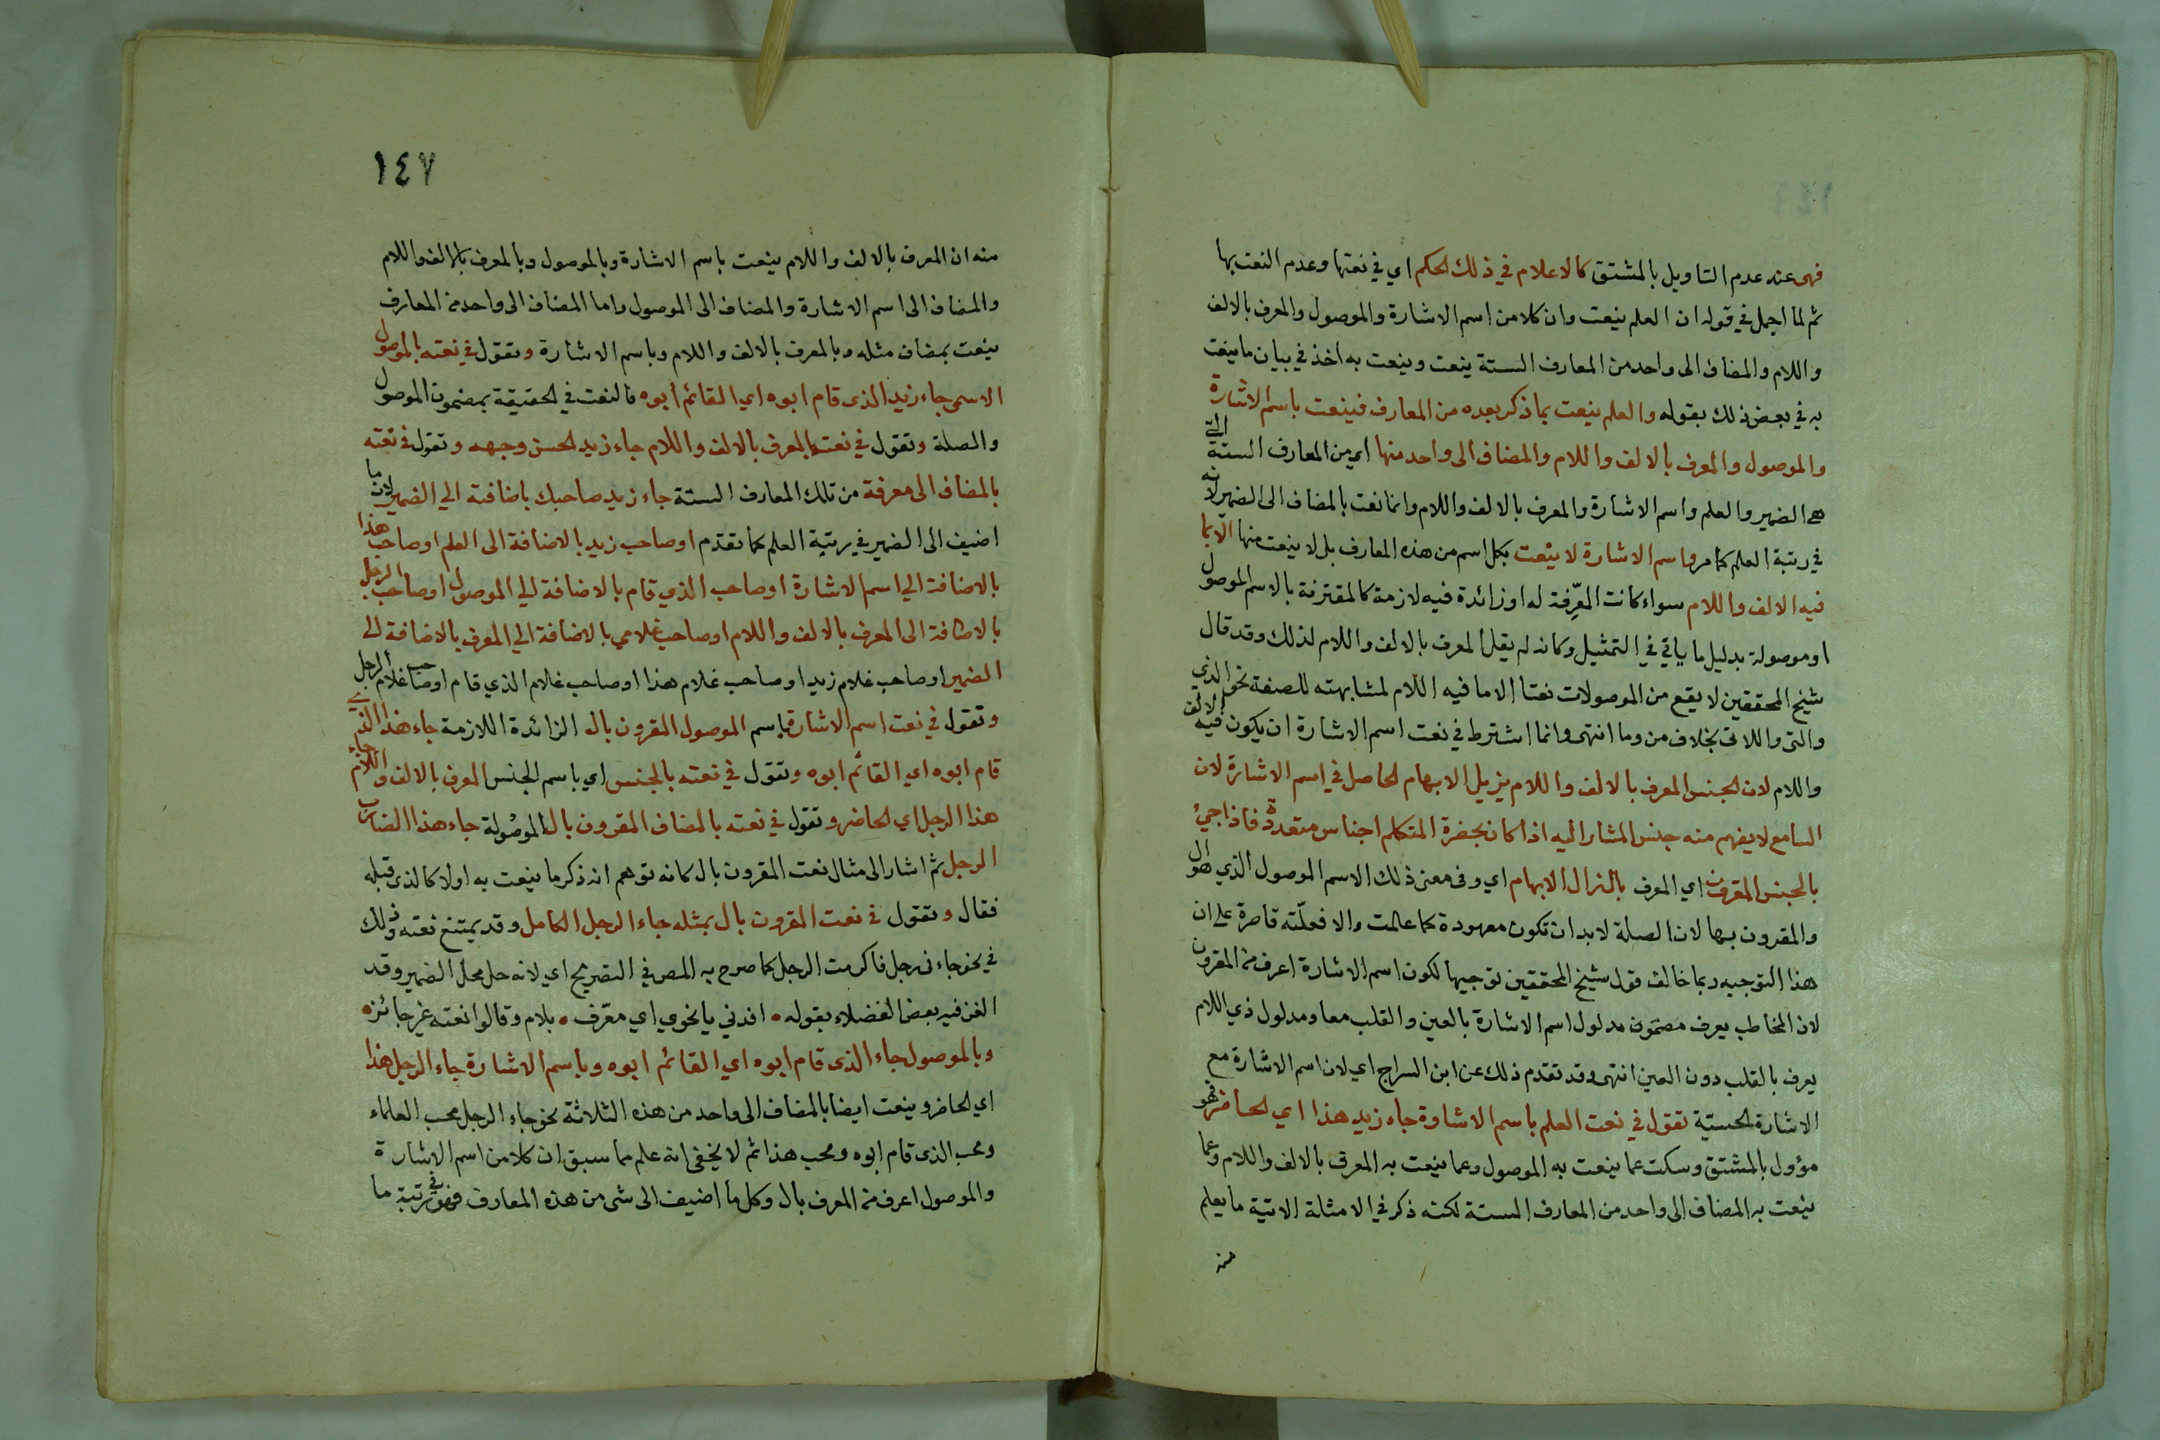 فهى عند عدم التاويل بالمشتق كالاعلام في ذلك الحكم اي في نعتها وعدم النعت بها
ثم لما اجمل في قوله ان العلم ينعت وان كلا من اسم الاشارة والموصول والمعرف بالالف
واللام والمضاف الى واحد من المعارف الستة ينعت وينعت به اخذ في بيان ما ينعت
به في بعض ذلك بقوله والعلم ينعت بما ذكر بعده من المعارف فينعت باسم الاشارة
والموصول والمعرف بالالف واللام والمضاف الى واحد منها اي من المعارف الستة التي
هي الضمير والعلم واسم الاشارة والمعرف بالالف واللام وانما نعت بالمضاف الى الضمير لانه
في رتبة العلم كما مر واسم الاشارة لا ينعت بكل اسم من هذه المعارف بل لا ينعت منها الا بما
فيه الالف واللام سواء كانت المعرِّفة له او زائدة فيه لازمة كالمقترنة بالاسم الموصول
او موصولة بدليل ما ياتي في التمثيل وكانه لم يقل المعرف بالالف واللام لذلك وقد قال
شيخ المحققين لا يقع من الموصولات نعتا الا ما فيه اللام لمشابهته للصفة نحو الذي
والتى واللاتى بخلاف من وما انتهى وانما اشترط في نعت اسم الاشارة ان يكون فيه الالف
واللام لان الجنس المعرف بالالف واللام يزيل الابهام الحاصل في اسم الاشارة لان
السامع لا يفهم منه جنس المشار اليه اذا كان بحضرة المتكلم اجناس متعددة فاذا جيئ
بالجنس المقرون اي المعرف بال زال الابهام اي وفى معنى ذلك الاسم الموصول الذي هو ال
والمقرون بها لان الصلة لابد ان تكون معهودة كما علمت والا فعلّته قاصرة على ان
هذا التوجيه ربما خالف قول شيخ المحققين توجيها لكون اسم الاشارة اعرف من المقرون
لان المخاطب يعرف مضمون مدلول اسم الاشارة بالعين والقلب معا ومدلول ذي اللام
يعرف بالقلب دون العين انتهى وقد تقدم ذلك عن ابن السراج اي لان اسم الاشارة مع
الاشارة الحسيّة تقول في نعت العلم باسم الاشارة جاء زيد هذا اي الحاضر فهو
مؤول بالمشتق وسكت عما ينعت به الموصول وعما ينعت به المعرف بالالف واللام وعما
ينعت به المضاف الى واحد من المعارف الستة لكنه ذكر في الامثلة الاتية ما يعلم
منه
١٤٧
منه ان المعرف بالالف واللام ينعت باسم الاشارة وبالموصول وبالمعرف بالالف واللام
والمضاف الى اسم الاشارة والمضاف الى الموصول واما المضاف الى واحد من المعارف
ينعت بمضاف مثله وبالمعرف بالالف واللام وباسم الاشارة وتقول في نعته بالموصول
الاسمى جاء زيد الذى قام ابوه اي القائم ابوه فالنعت في الحقيقة بمضمون الموصول
والصلة وتقول في نعته بالمعرف بالالف واللام جاء زيد الحسن وجهه وتقول في نعته
بالمضاف الى معرفة من تلك المعارف الستة جاء زيد صاحبك باضافته الي الضمير لان ما
اضيف الى الضمير في رتبة العلم كما تقدم او صاحب زيد بالاضافة الى العلم او صاحب هذا
بالاضافة الي اسم الاشارة او صاحب الذي قام بالاضافة الي الموصول او صاحب الرجل
بالاضافة الى المعرف بالالف واللام او صاحب غلامي بالاضافة الي المعرف بالاضافة الى
الضمير او صاحب غلام زيد او صاحب غلام هذا او صاحب غلام الذي قام او صاحب غلام الرجل
وتقول في نعت اسم الاشارة باسم الموصول المقرون بال الزائدة اللازمة جاء هذا الذي
قام ابوه اي القائم ابوه وتقول في نعته بالجنس اي باسم الجنس المعرف بالالف واللام جاء
هذا الرجل اي الحاضر وتقول في نعته بالمضاف المقرون بال الموصولة جاء هذا الضارب
الرجل ثم اشار الى مثال نعت المقرون بال كانه توهم انه ذكر ما ينعت به اولا كالذى قبله
فقال وتقول في نعت المقرون بال بمثله جاء الرجل الكامل وقد يمتنع نعته وذلك
في نحو جاءنى رجل فاكرمت الرجل كما صرح به المص في التصريح اي لانه حل محل الضمير وقد
الغز فيه بعض الفضلاء بقوله • افدني يا نحوي اي معرّف • بلام وقالوا نعته غير جائز •
وبالموصول جاء الذى قام ابوه اي القائم ابوه وباسم الاشارة جاء الرجل هذا
اي الحاضر وينعت ايضا بالمضاف الى واحد من هذه الثلاثة نحو جاء الرجل محب العلماء
ومحب الذى قام ابوه ومحب هذا ثم لا يخفى انه علم مما سبق ان كلا من اسم الاشارة
والموصول اعرف من المعرف بال وكل ما اضيف الى شى من هذه المعارف فهو في رتبة ما